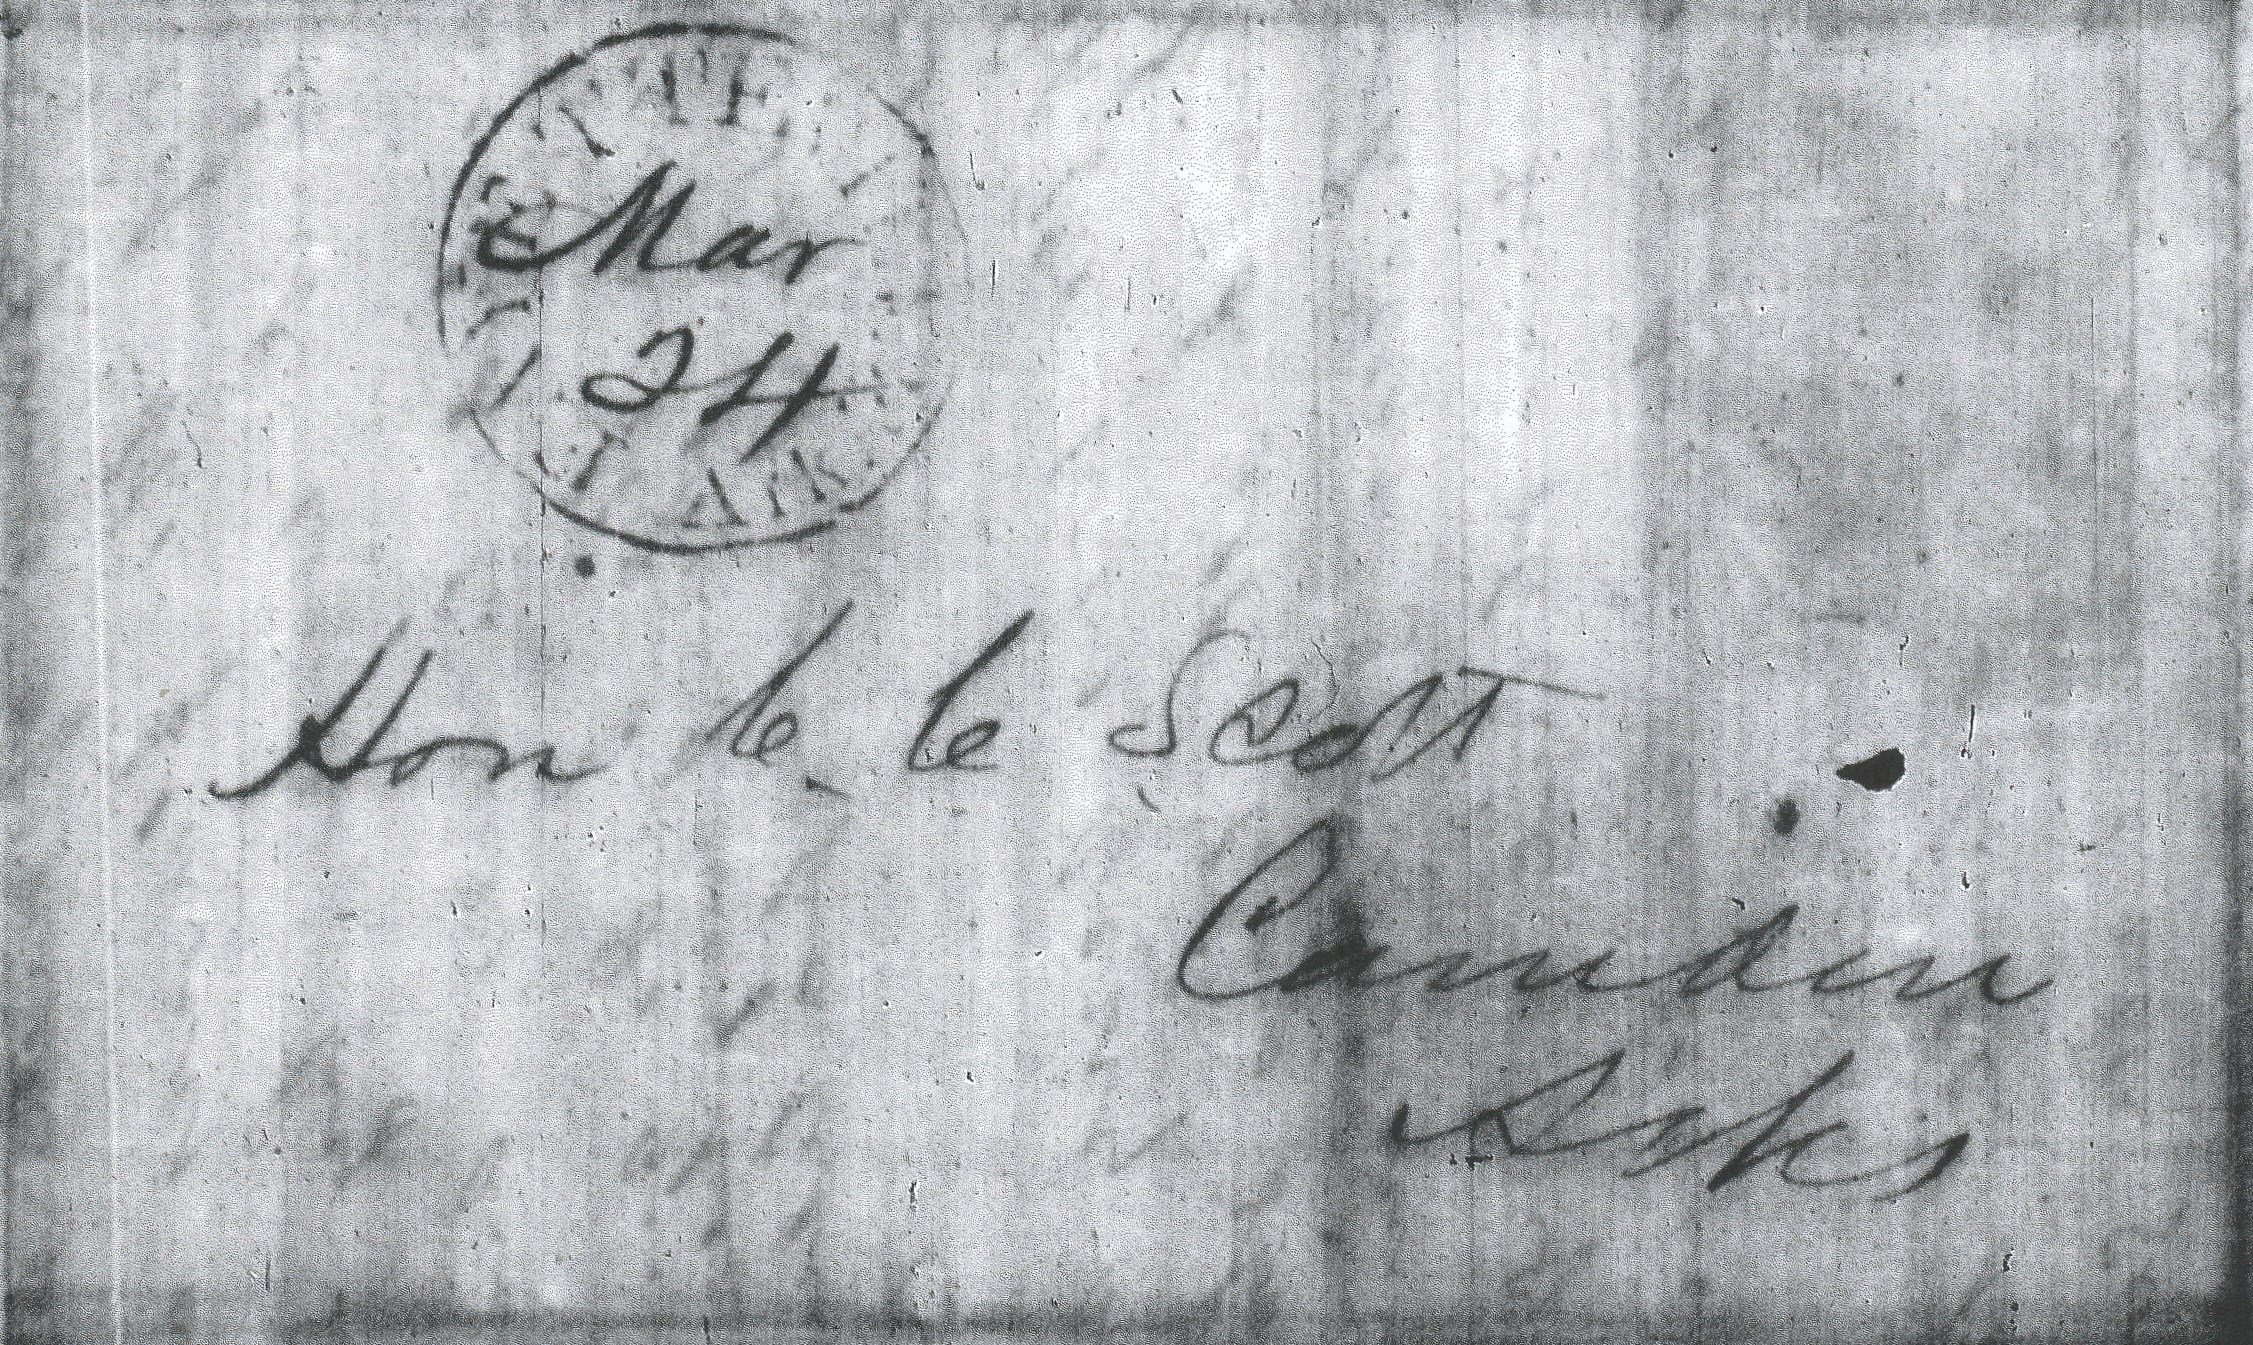 Mar
24
ARK
Hon C. C Scott
Camden
Arks